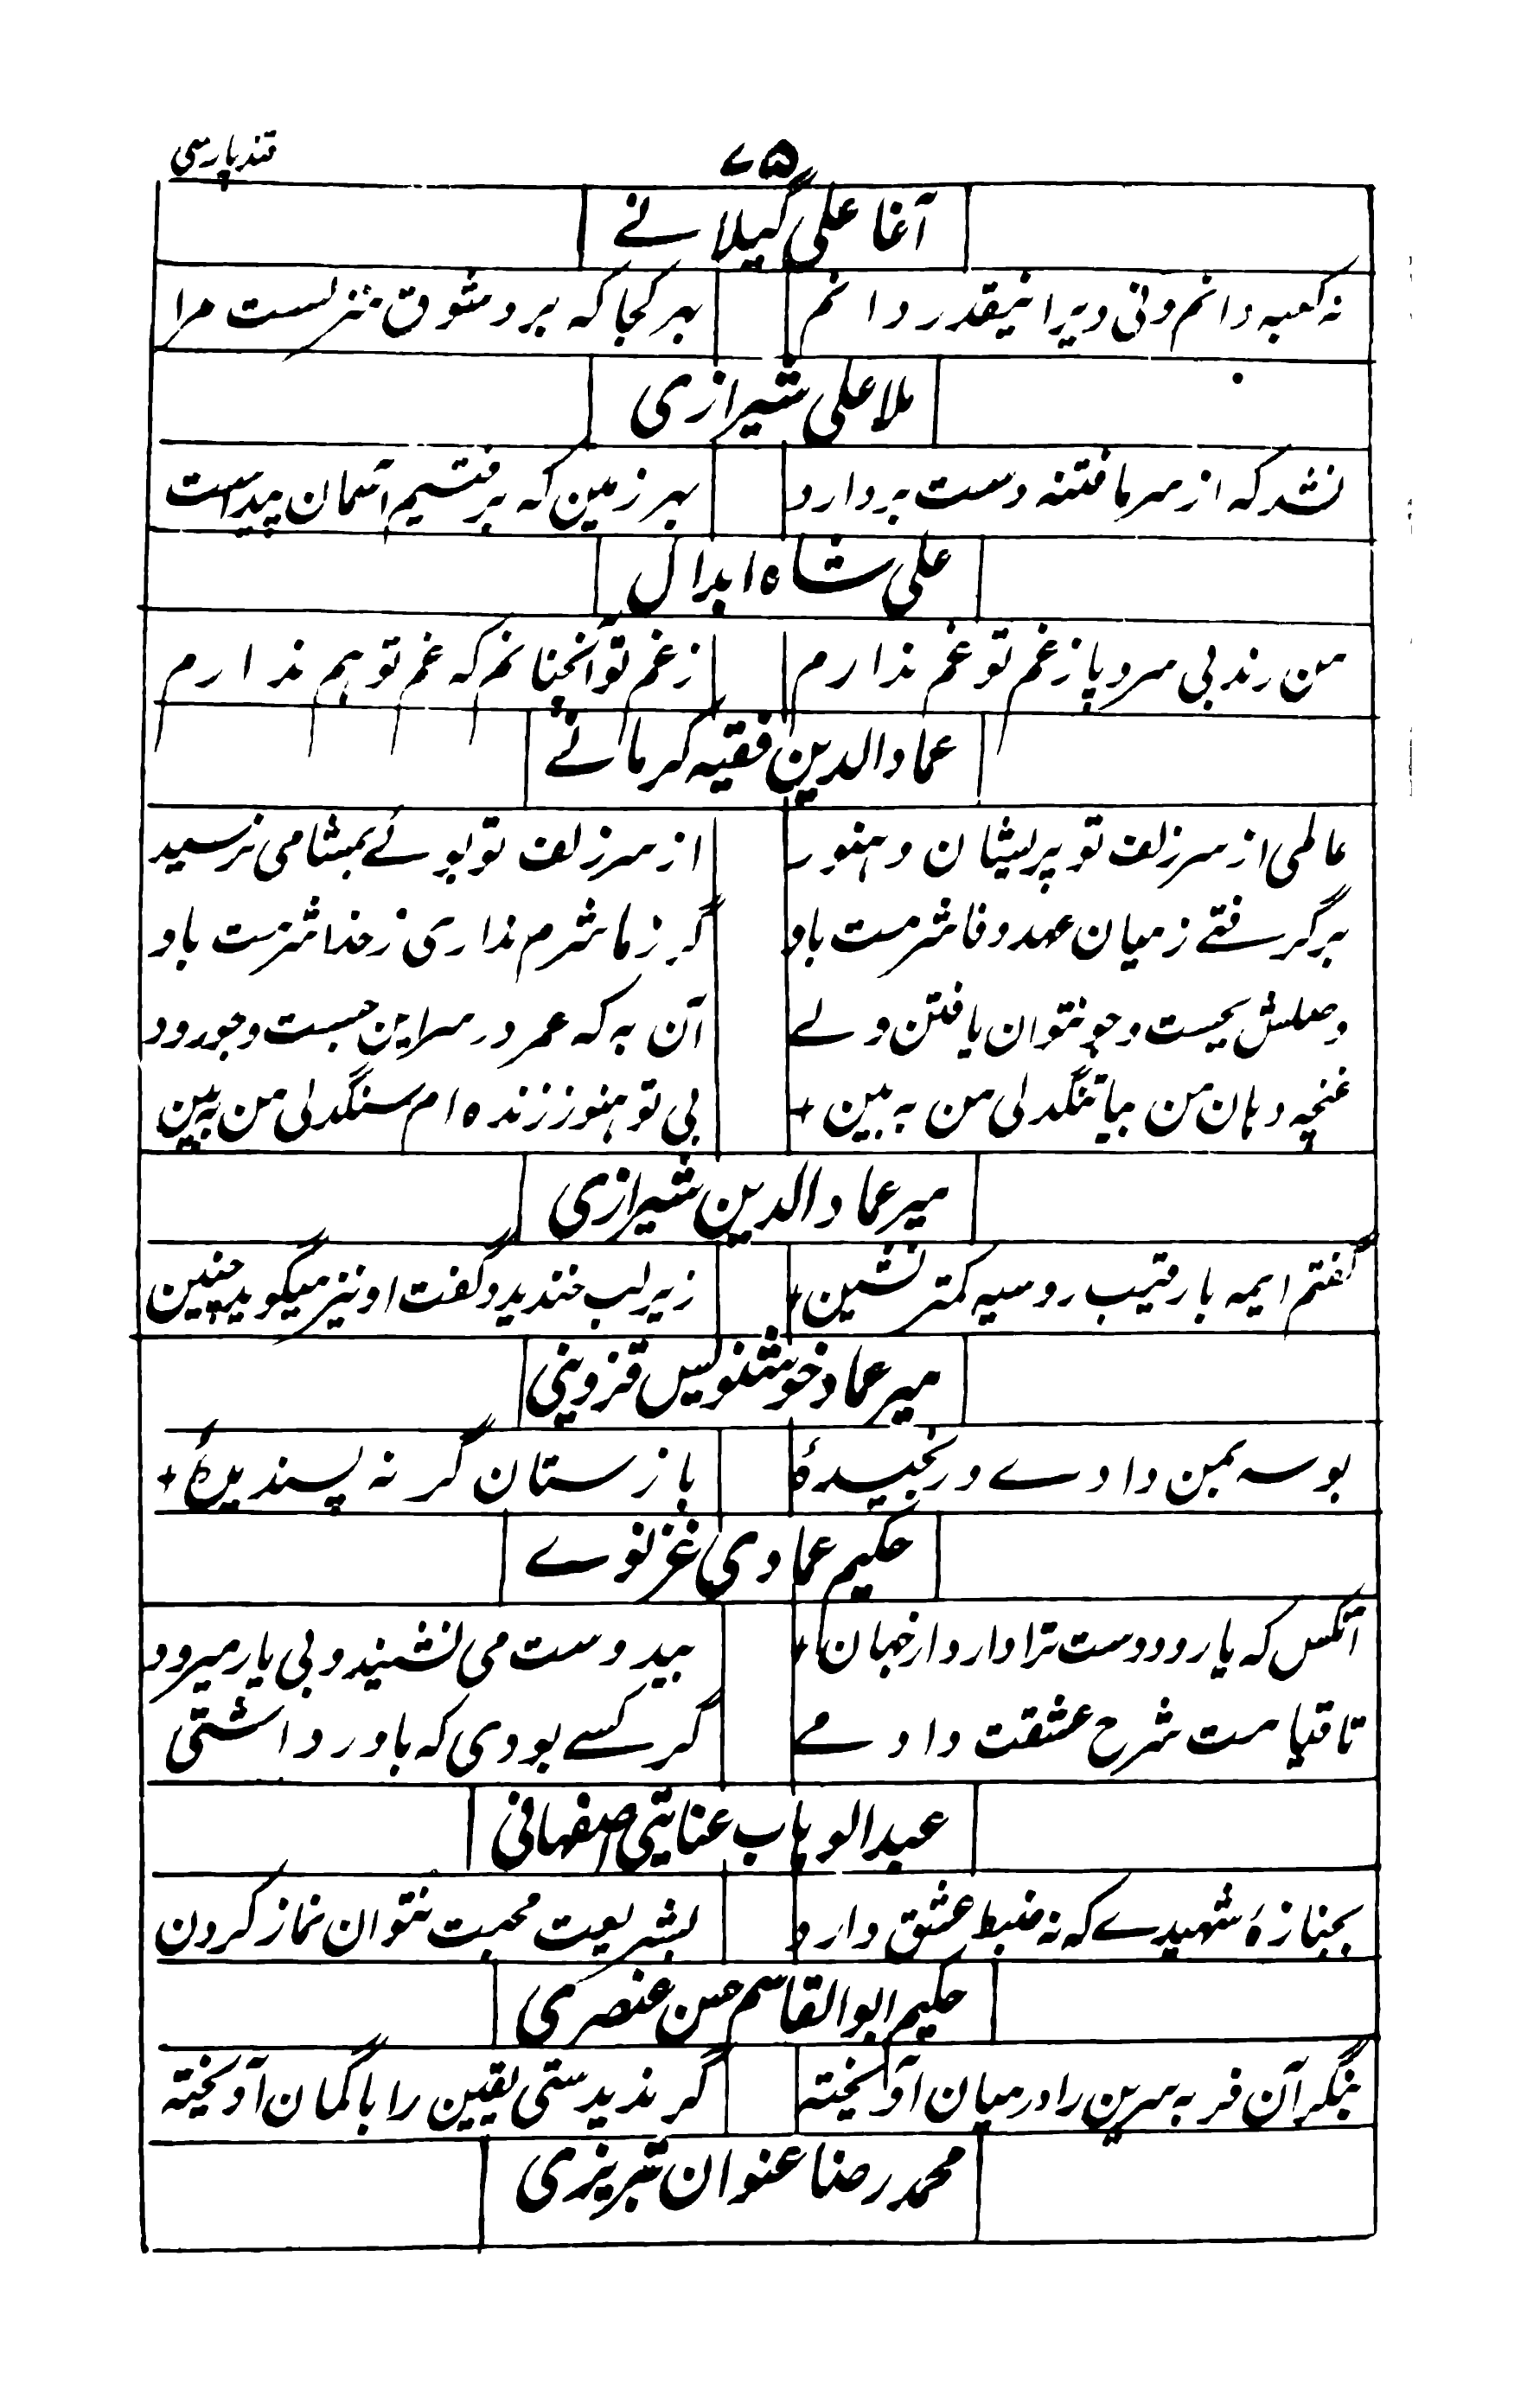 قند پارسی
۷۵
آغا علی گیلانے
نہ کعبہ دانم ونی دیر اینقدر دانم بہر کجا کہ برد شوق منزلست مرا
ملا علی شیرازی
نشد کہ از سر ما فتنہ دست بردارد بہر زمین کہ برفتیم آسمان پیداست
علی شاہ ابدال
من رند بی سروپا زغم تو غم ندارم زغم تو آنچنانم کہ غم تو ہم ندارم
عماد الدین فقیہ کرمانے
عالمی از سر زلف تو پریشان و ہنوز از سر زلف تو بوئے بمشامی نرسید
برگرفتے ز میان عہد وفا شرمت باد گر ز ما شرم نداری ز خدا شرمت باد
وصلش بجست وجو نتوان یافتن ولے آن بہ کہ عمر در سر این جست وجو رود
غنچہ دہان من بیا تنگدلی من بہ بین + بی تو ہنوز زندہ ام سنگدلی من بہ بین
میر عماد الدین شیرازی
گفتم ایمہ با رقیب روسیہ کمتر نشین + زیر لب خندید و گفت او نیز میگوید چنین
میر عماد خوشنویس قزوینی
بوسہ بمن دادے و رنجیدۂ باز ستان گر نہ پسندیدۂ +
حکیم عمادی غزنوے
آنکس کہ یار و دوست ترا دارد از جہان + بیدوست می نشیند و بی یار میرود
تا قیامت شرح عشقت دادمے گر کسے بودی کہ باور داشتی
عبد الوہاب عنایتی اصفہانی
بجنازۂ شہیدے کہ نہ ضبط عشق دارد بشریعت محبت نتوان نماز کردن
حکیم ابو القاسم حسن عنصری
بنگر آن فربہ سرین را در میان آویختہ گر ندیدستی یقین را با گمان آویختہ
محمد رضا عنوان تبریزی